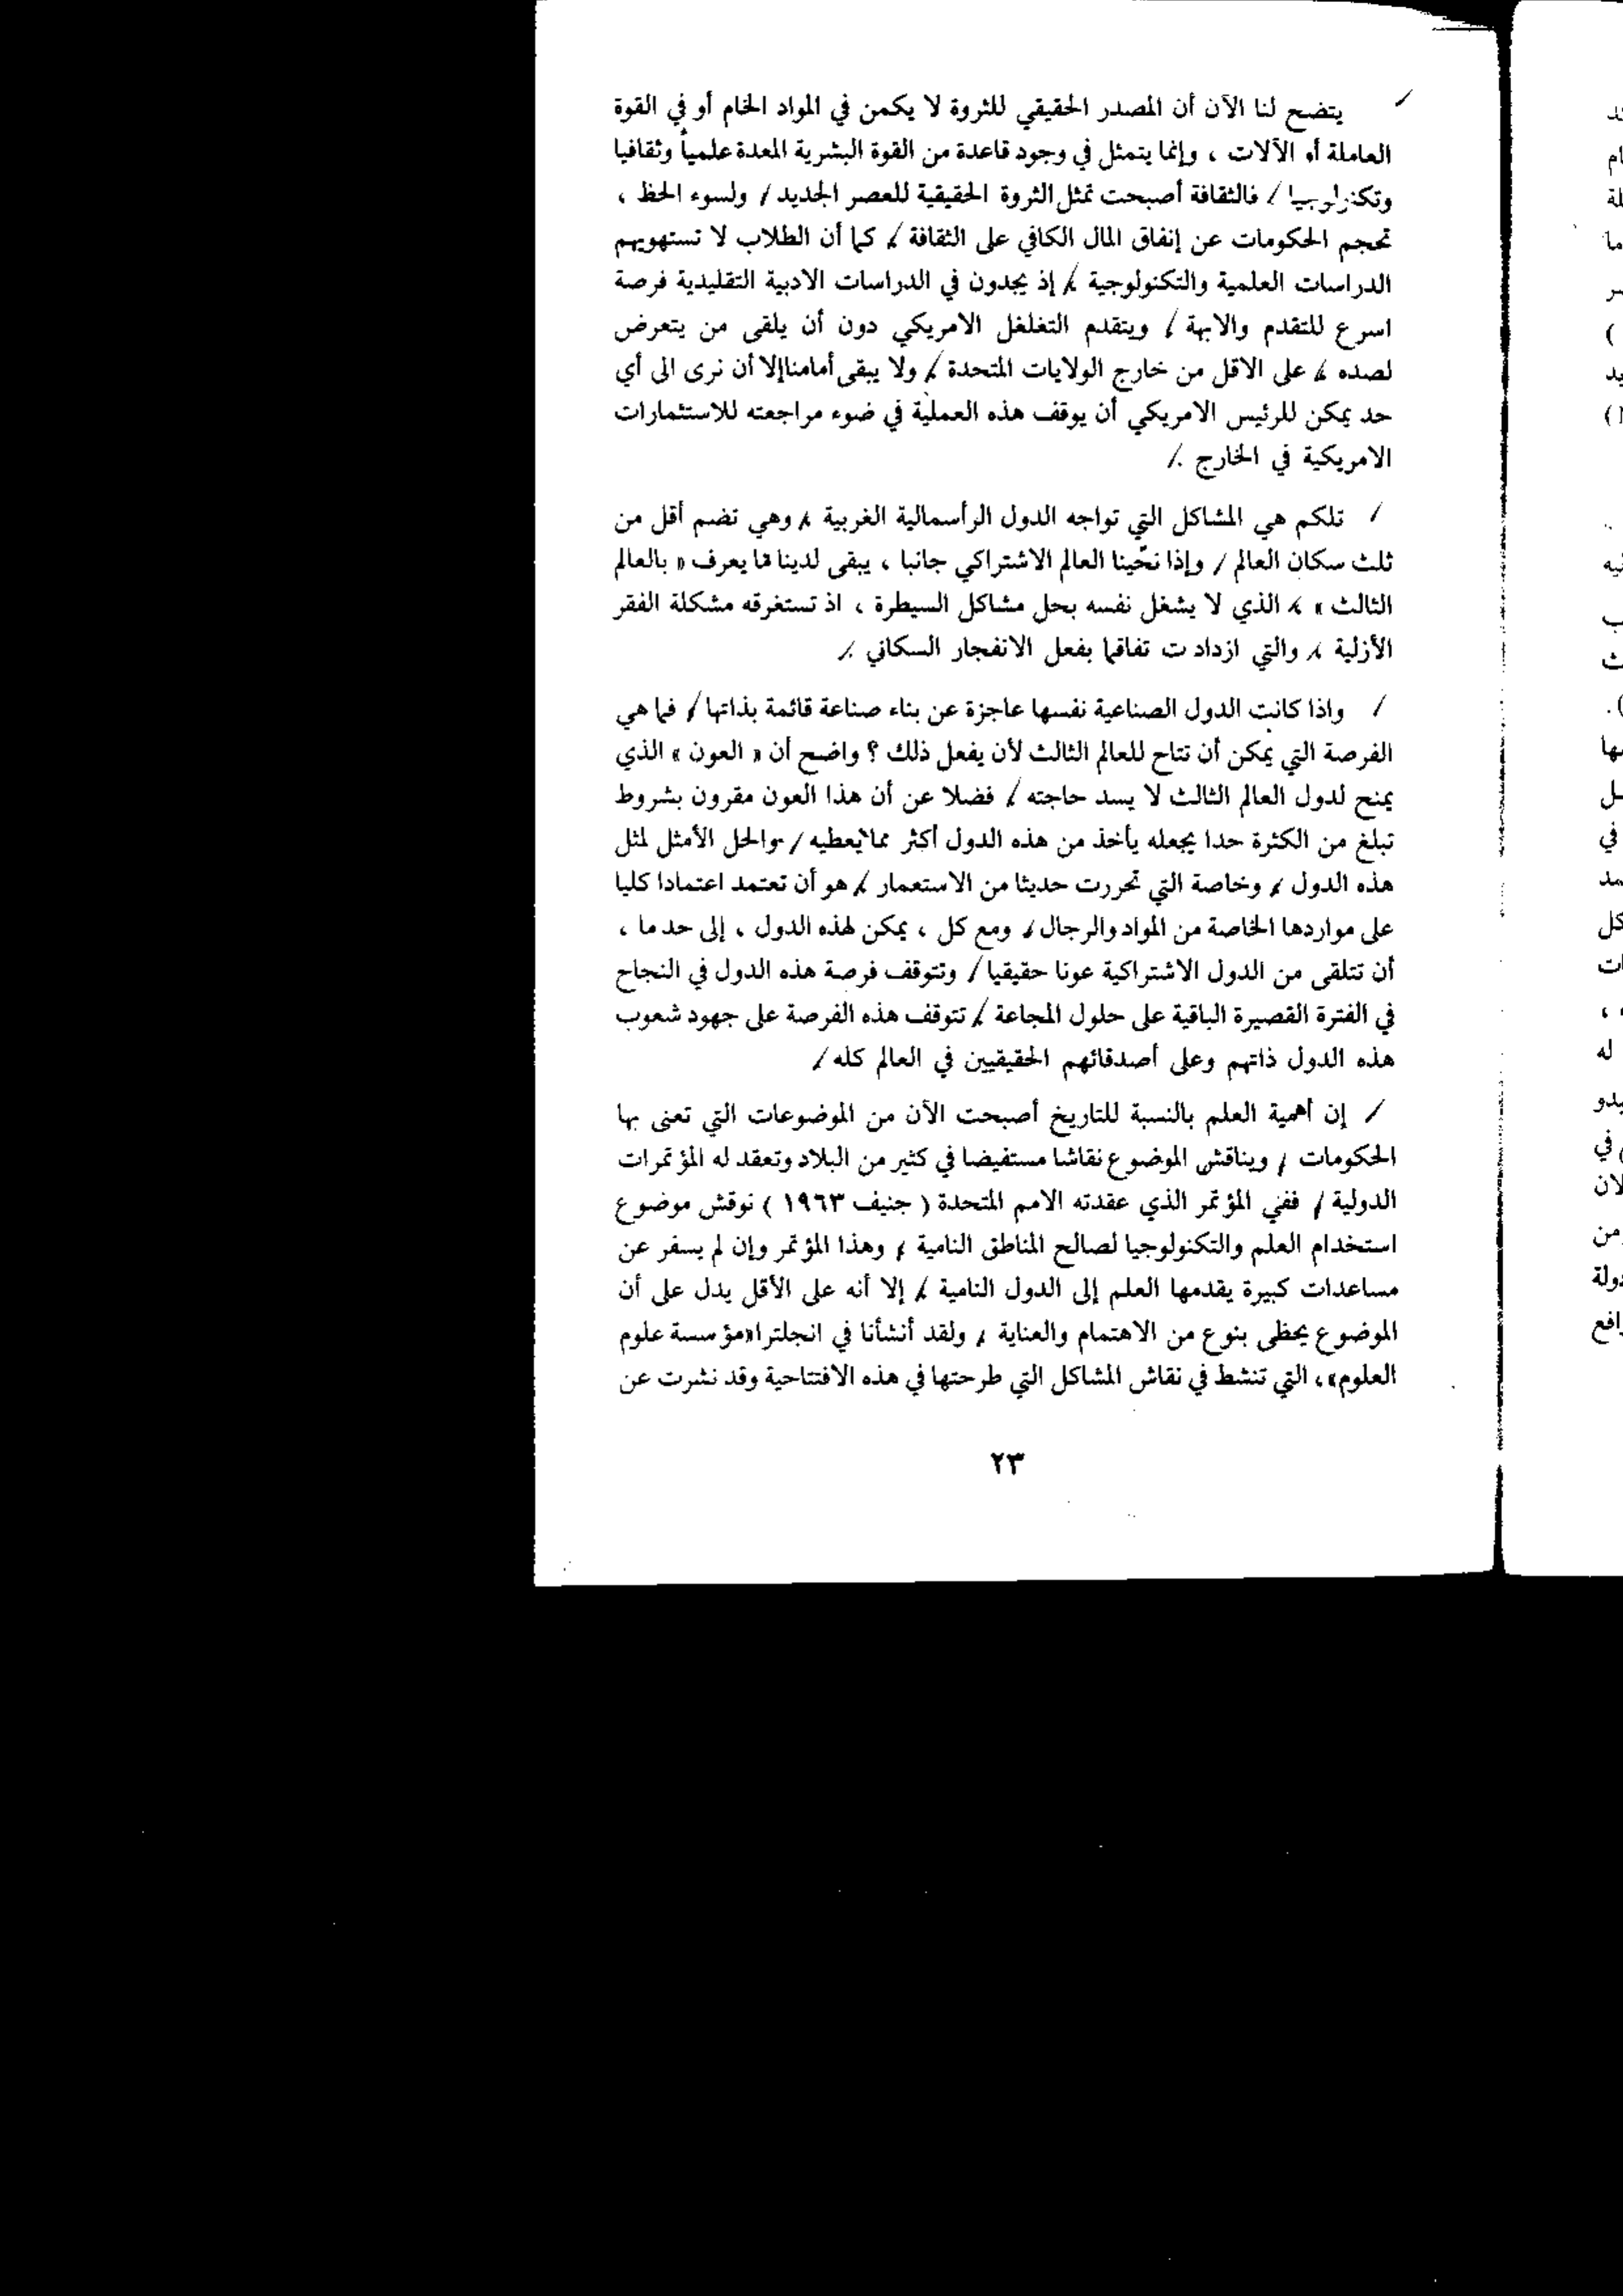 يتضح لنا الآن أن المصدر الحقيقي للثروة لا يكمن في المواد الخام أو في القوة
العاملة أو الآلات ، وإنما يتمثل في وجود قاعدة من القوة البشرية المعدة علمياً وثقافيا
وتكنولوجيا / فالثقافة أصبحت تمثل الثروة الحقيقية للعصر الجديد / ولسوء الحظ ،
تحجم الحكومات عن إنفاق المال الكافي على الثقافة / كما أن الطلاب لا تستهويهم
الدراسات العلمية والتكنولوجية / إذ يجدون في الدراسات الادبية التقليدية فرصة
اسرع للتقدم والابهة / ويتقدم التغلغل الامريكي دون أن يلقى من يتعرض
لصده / على الاقل من خارج الولايات المتحدة / ولا يبقى أمامنا إلا أن نرى الى أي
حد يمكن للرئيس الامريكي أن يوقف هذه العملية في ضوء مراجعته للاستثمارات
الامريكية في الخارج ./
/ تلكم هي المشاكل التي تواجه الدول الرأسمالية الغربية / وهي تضم أقل من
ثلث سكان العالم / وإذا نحّينا العالم الاشتراكي جانبا ، يبقى لدينا ما يعرف « بالعالم
الثالث » / الذي لا يشغل نفسه بحل مشاكل السيطرة ، اذ تستغرقه مشكلة الفقر
الأزلية / والتي ازداد ت تفاقما بفعل الانفجار السكاني ./
/ واذا كانت الدول الصناعية نفسها عاجزة عن بناء صناعة قائمة بذاتها / فما هي
الفرصة التي يمكن أن تتاح للعالم الثالث لأن يفعل ذلك ؟ واضح أن « العون » الذي
يمنح لدول العالم الثالث لا يسد حاجته / فضلا عن أن هذا العون مقرون بشروط
تبلغ من الكثرة حدا يجعله يأخذ من هذه الدول أكثر مما يعطيه / والحل الأمثل لمثل
هذه الدول / وخاصة التي تحررت حديثا من الاستعمار / هو أن تعتمد اعتمادا كليا
على مواردها الخاصة من المواد والرجال / ومع كل ، يمكن لهذه الدول ، إلى حد ما ،
أن تتلقى من الدول الاشتراكية عونا حقيقيا / وتتوقف فرصة هذه الدول في النجاح
في الفترة القصيرة الباقية على حلول المجاعة / تتوقف هذه الفرصة على جهود شعوب
هذه الدول ذاتهم وعلى أصدقائهم الحقيقيين في العالم كله /
/ إن أهمية العلم بالنسبة للتاريخ أصبحت الآن من الموضوعات التي تعنى بها
الحكومات / ويناقش الموضوع نقاشا مستفيضا في كثير من البلاد وتعقد له المؤتمرات
الدولية / ففي المؤتمر الذي عقدته الامم المتحدة ( جنيف ١٩٦٣ ) نوقش موضوع
استخدام العلم والتكنولوجيا لصالح المناطق النامية / وهذا المؤتمر وإن لم يسفر عن
مساعدات كبيرة يقدمها العلم إلى الدول النامية / إلا أنه على الأقل يدل على أن
الموضوع يحظى بنوع من الاهتمام والعناية / ولقد أنشأنا في انجلترا «مؤسسة علوم
العلوم» ، التي تنشط في نقاش المشاكل التي طرحتها في هذه الافتتاحية وقد نشرت عن
٢٣